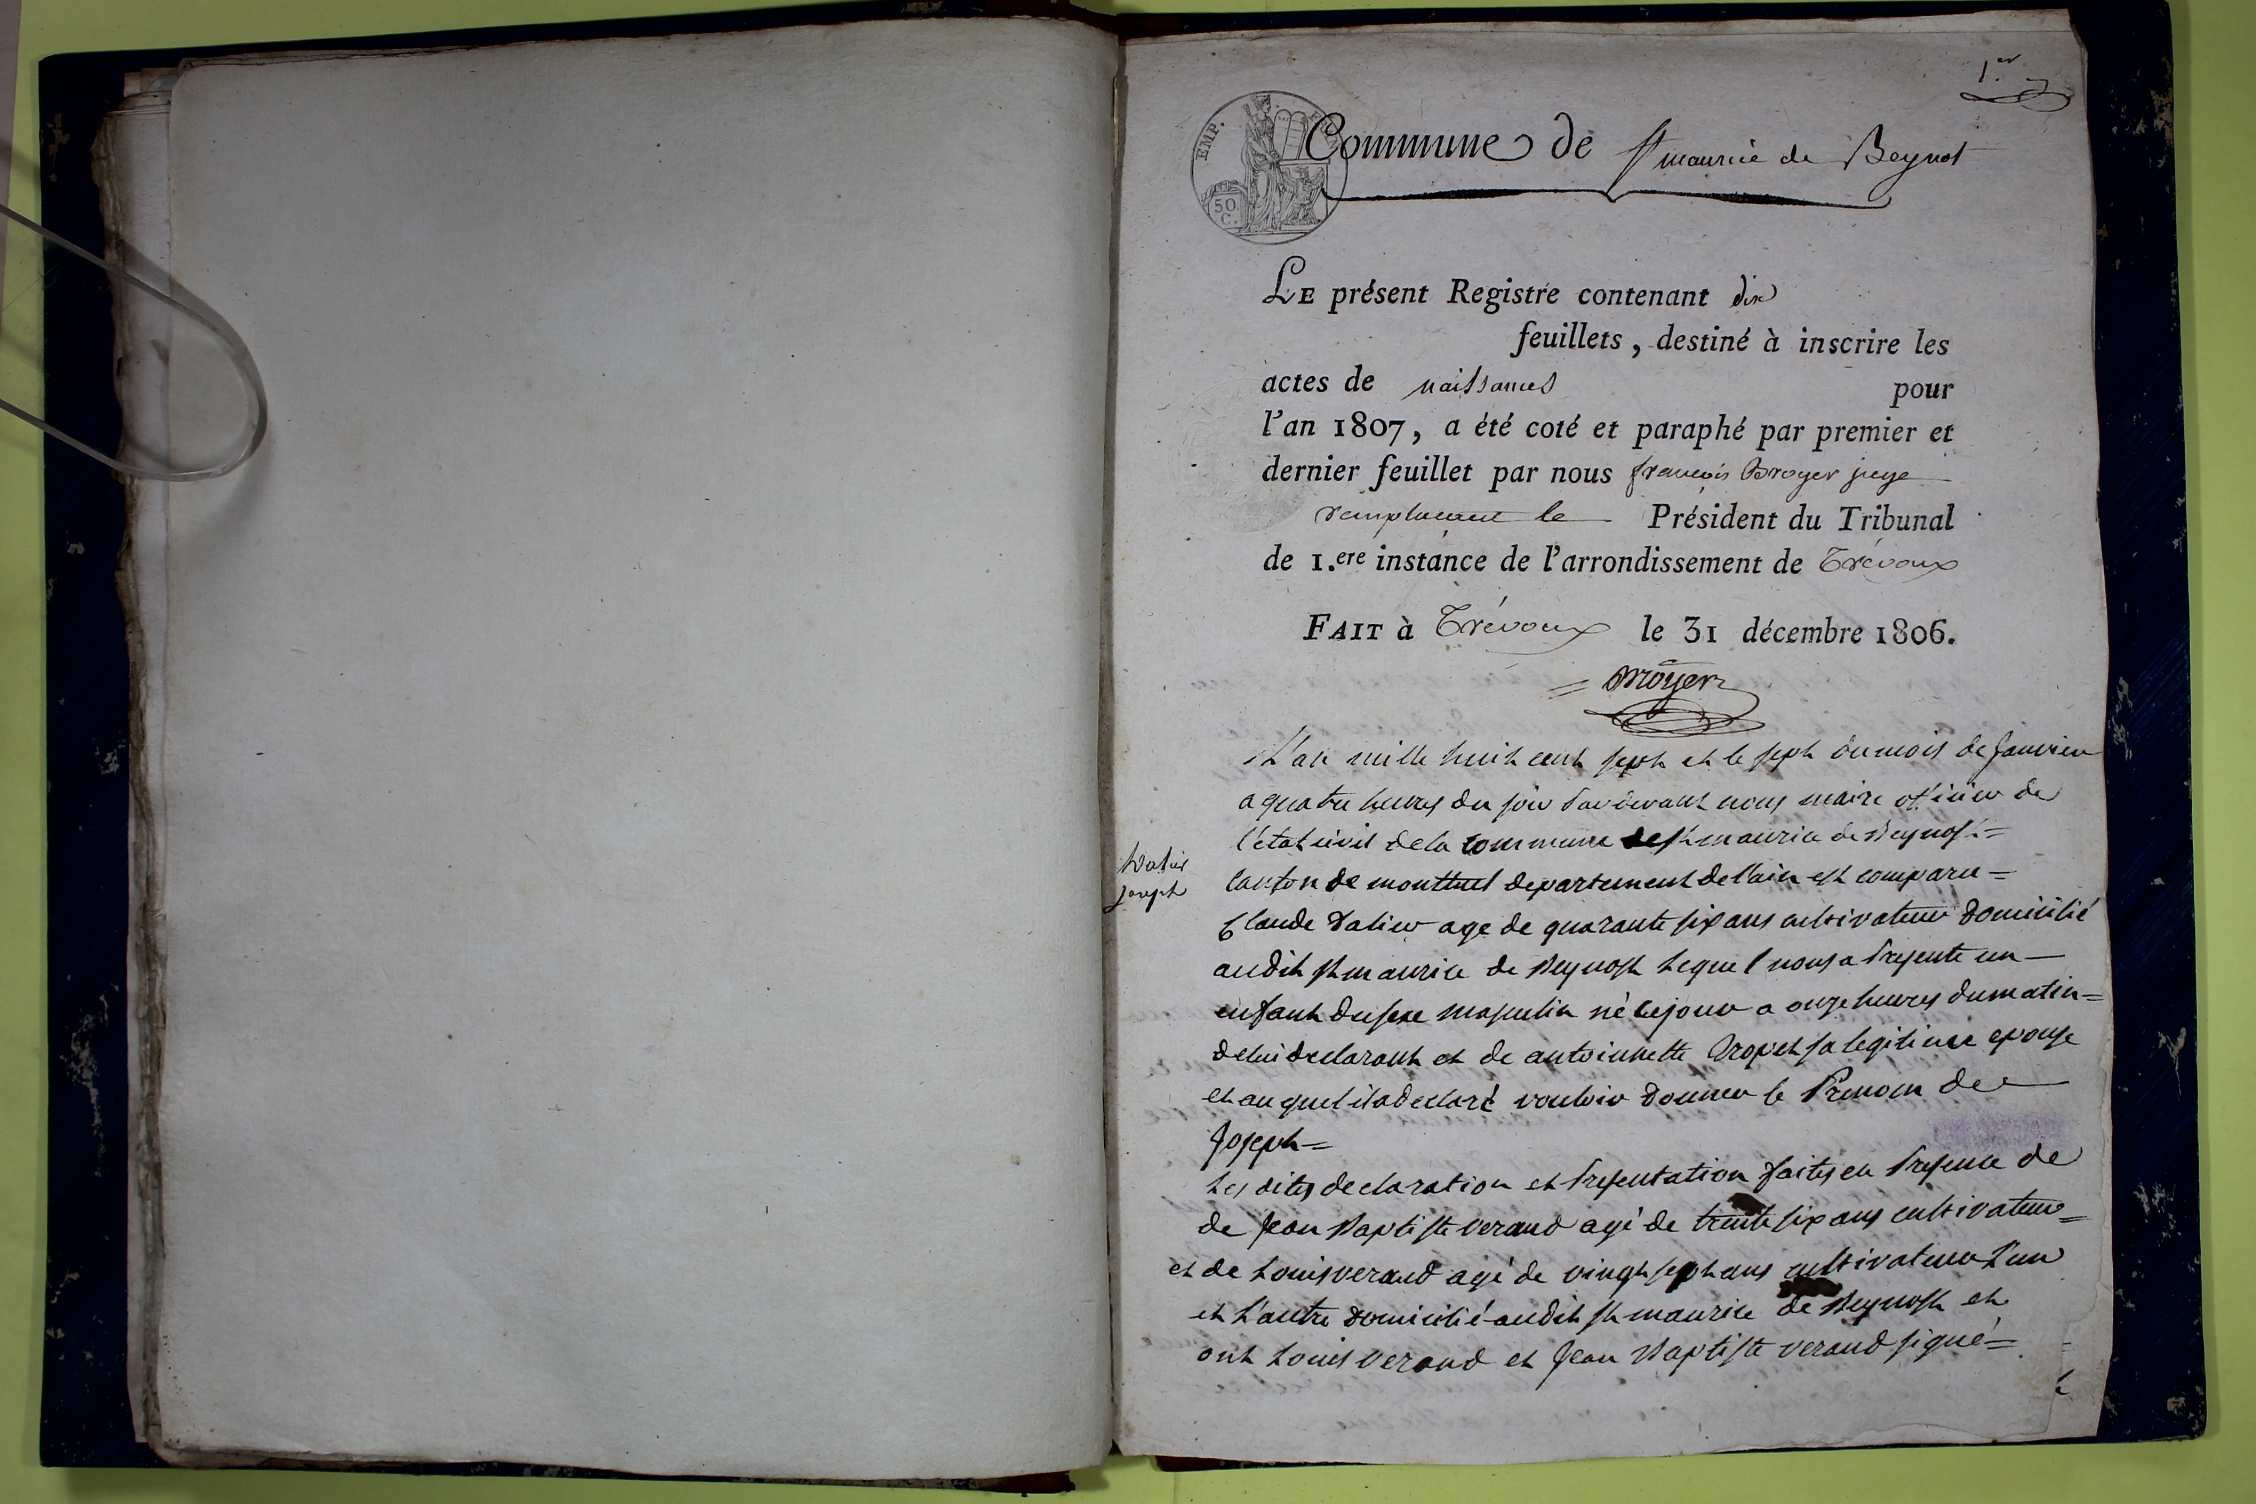 1.er
EMP.
50
C.
Commune de St maurice de Beynost
LE présent Registre contenant dix
feuillets, destiné à inscrire les
actes de naissances pour
l'an 1807, a été coté et paraphé par premier et
dernier feuillet par nous françois Broyer juge
remplaçant le Président du Tribunal
de 1.ere instance de l'arrondissement de Trévoux
FAIT à Trévoux le 31 décembre 1806.
= Broyer
L'an mille huit cent sept et le sept du mois de janvier
a quatre heures du soir Par devant nous maire officier de
l'état civil de la commune de St maurice de Beynost =
Canton de montluel departement de l'ain est comparu =
Vatier
Joseph
Claude Vatier age de quarante six ans cultivateur domicilié
audit St maurice de Beynost Lequel nous a Presente un
enfant du sexe masculin né Ce jour a onze heures du matin =
de lui declarant et de antoinette sa legitime epouse
et au quel il a declaré vouloir donner le Prenom de
Joseph =
Les dites declaration et Presentation faites en Presence de
de Jean Baptiste verand agé de trente six ans cultivateur =
et de Louis verand agé de vingt sept ans cultivateur L'un
et L'autre domicilié audit St maurice de Beynost et
ont Louis verand et Jean Baptiste verand signé =